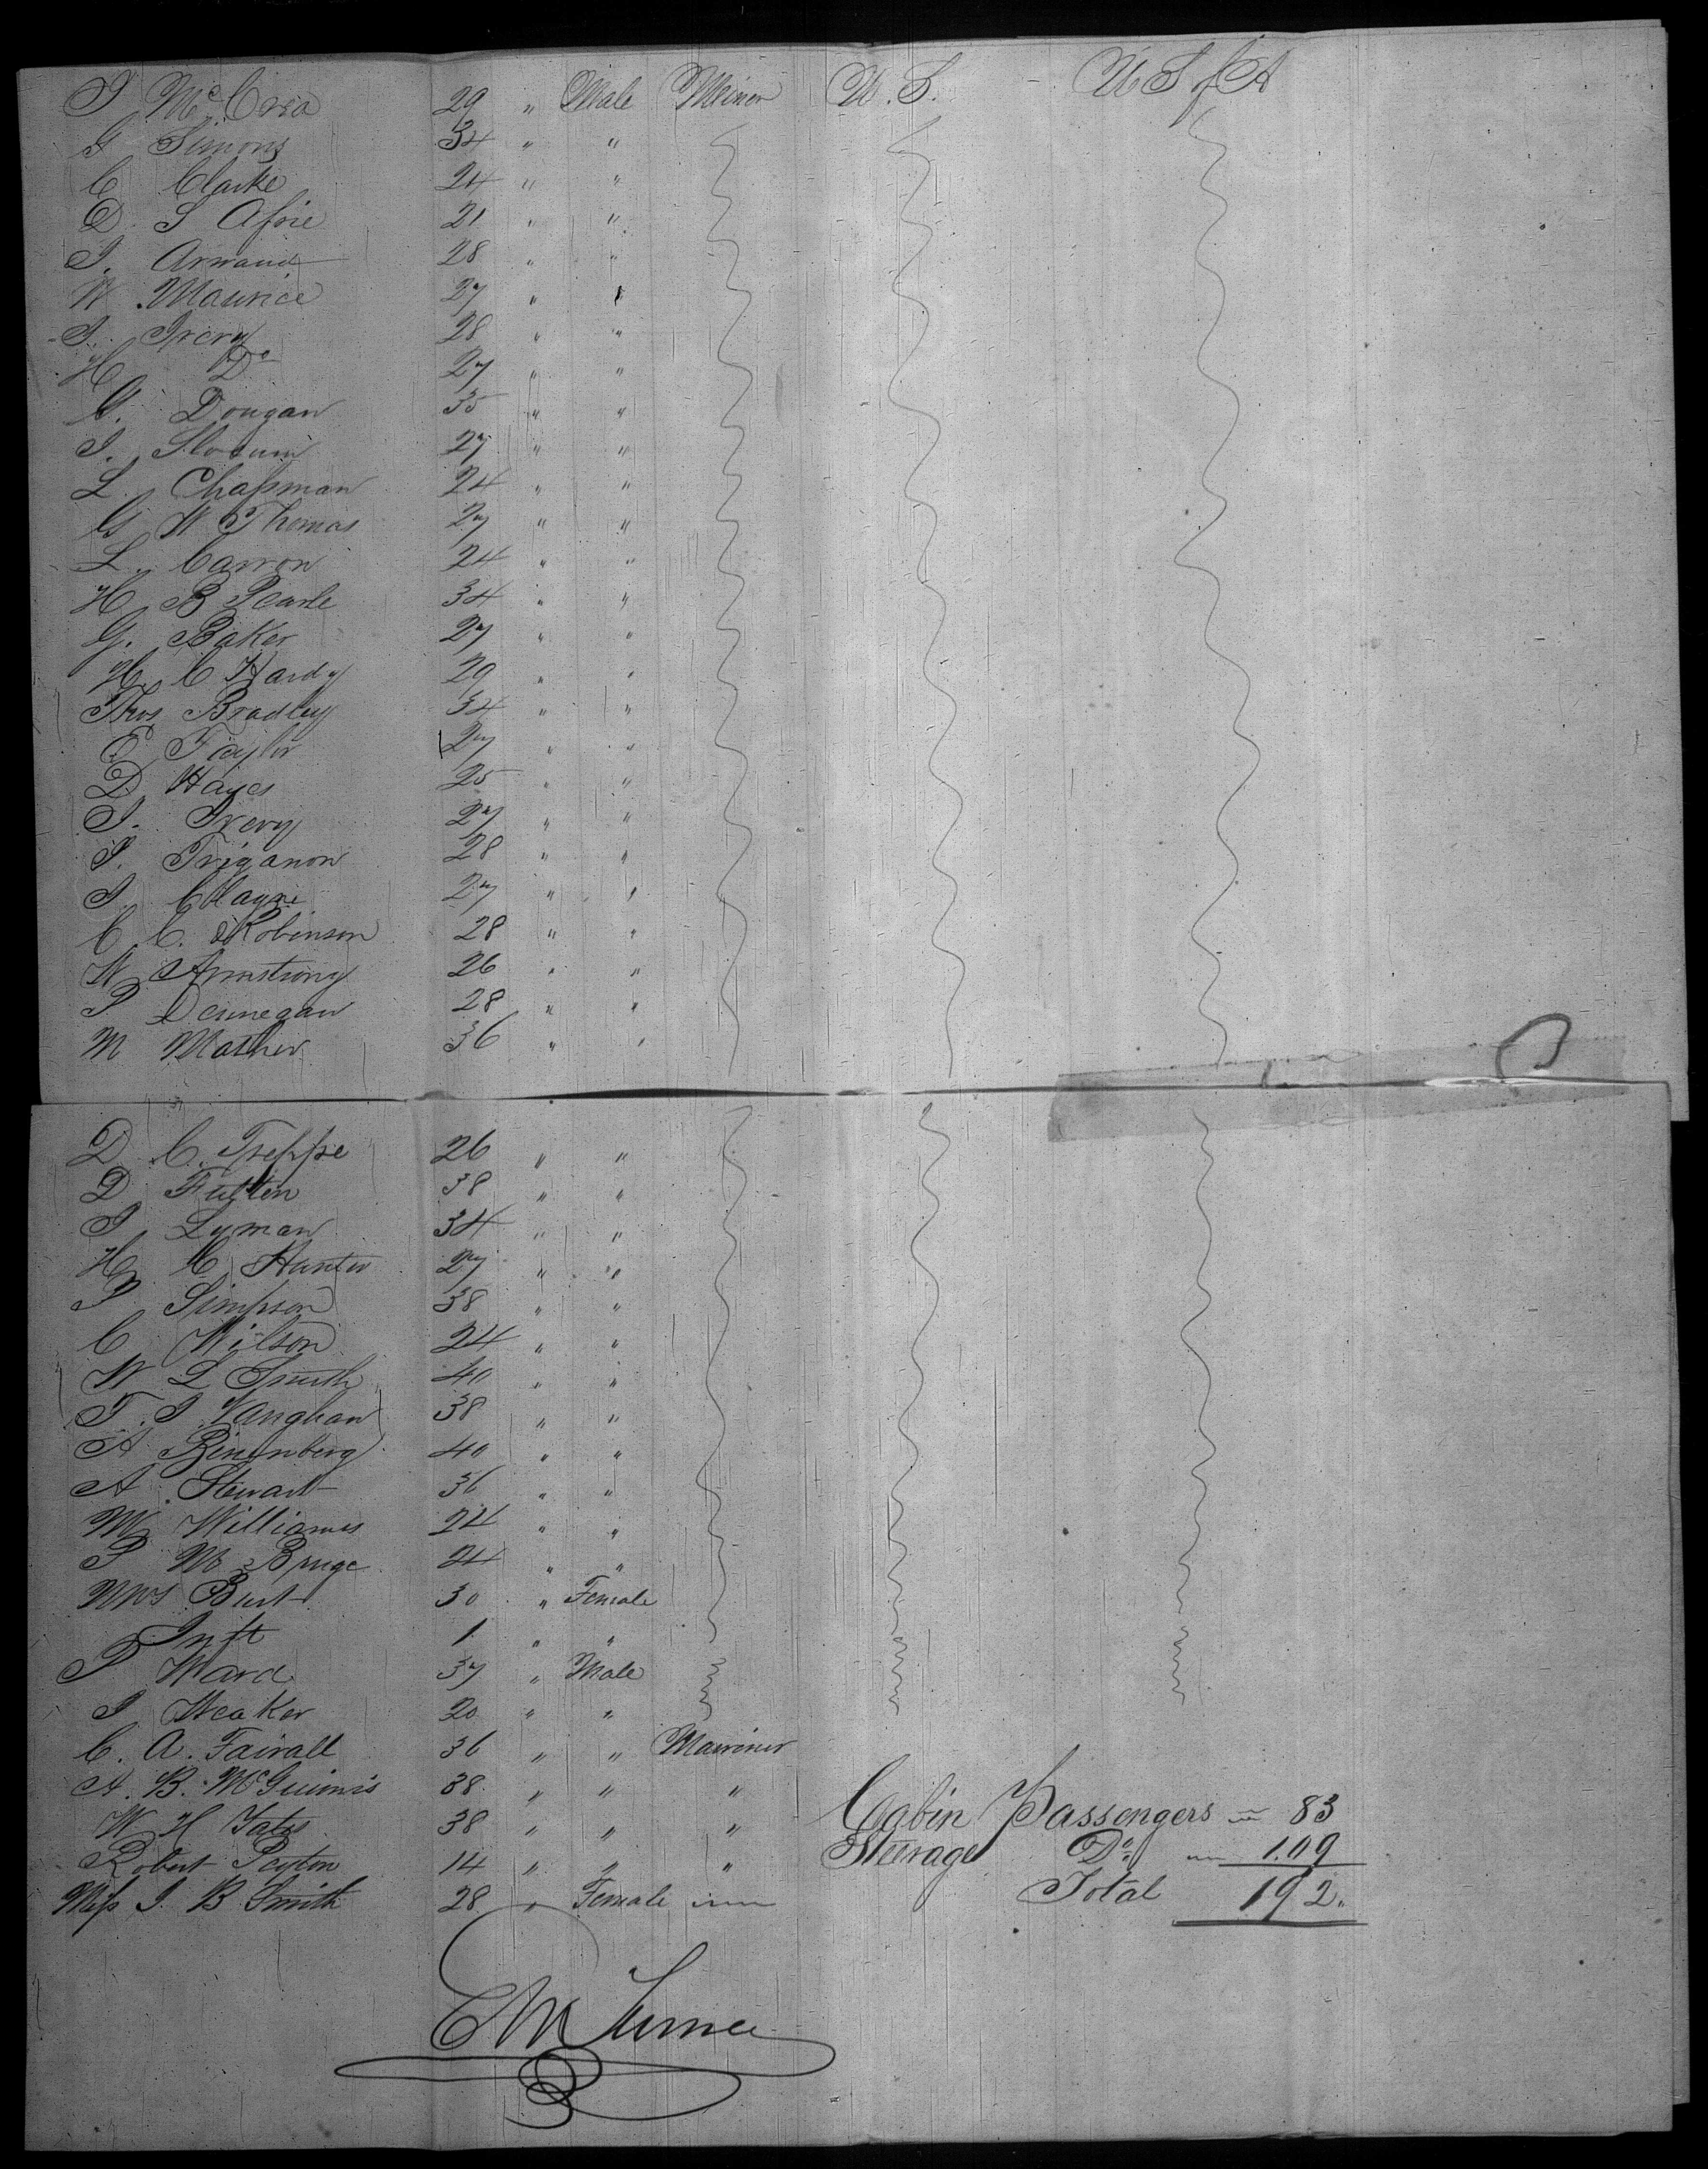 J McCrea 29 " Male Meiner U.S. U S of A
G Simons 34 " "
C Clarke 24 " "
D. S 21 " "
J. Arnaud 28 " "
W. Maurice 27 " "
J. Ivery 28 " "
H Do 27 " "
G. Dougan 35 " "
J. Slocum 27 " "
L. Chapman 24 " "
G W Thomas 27 " "
L. Carron 24 " "
H B Pearle 34 " "
G. Baker 27 " "
H C Hardy 29 " "
Thos Bradley 34 " "
E Taylor 27 " "
D Hayes 25 " "
J. Ivery 27 " "
J. Triganon 28 " "
J 27 " "
C C. Robinson 28 " "
W Armstrong 26 " "
P Dennegan 28 " "
M Mather 36 " "
D C. Treppe 26 " "
D Fulton 38 " "
J Lyman 34 " "
H C Hunter 27 " "
P Simpson 38 " "
C Wilson 24 " "
W L Smith 40 " "
T. J. Vaughan 38 " "
A 40 " "
A. Stewart 36 " "
M Williams 24 " "
P M Bruge 24 " "
Mrs Burt 30 " Female
Inft 1 " "
P Ward 37 " Male
J Weaker 20 " "
C. A. Fairall 36 " " Mauriner
A. B. McGuinnis 38 " " "
W H Yates 38 " " "
Cabin Passengers 83
Robert Peyton 14 " " "
Steerage Do 109
Miss J. B Smith 28 " Female
Total 192